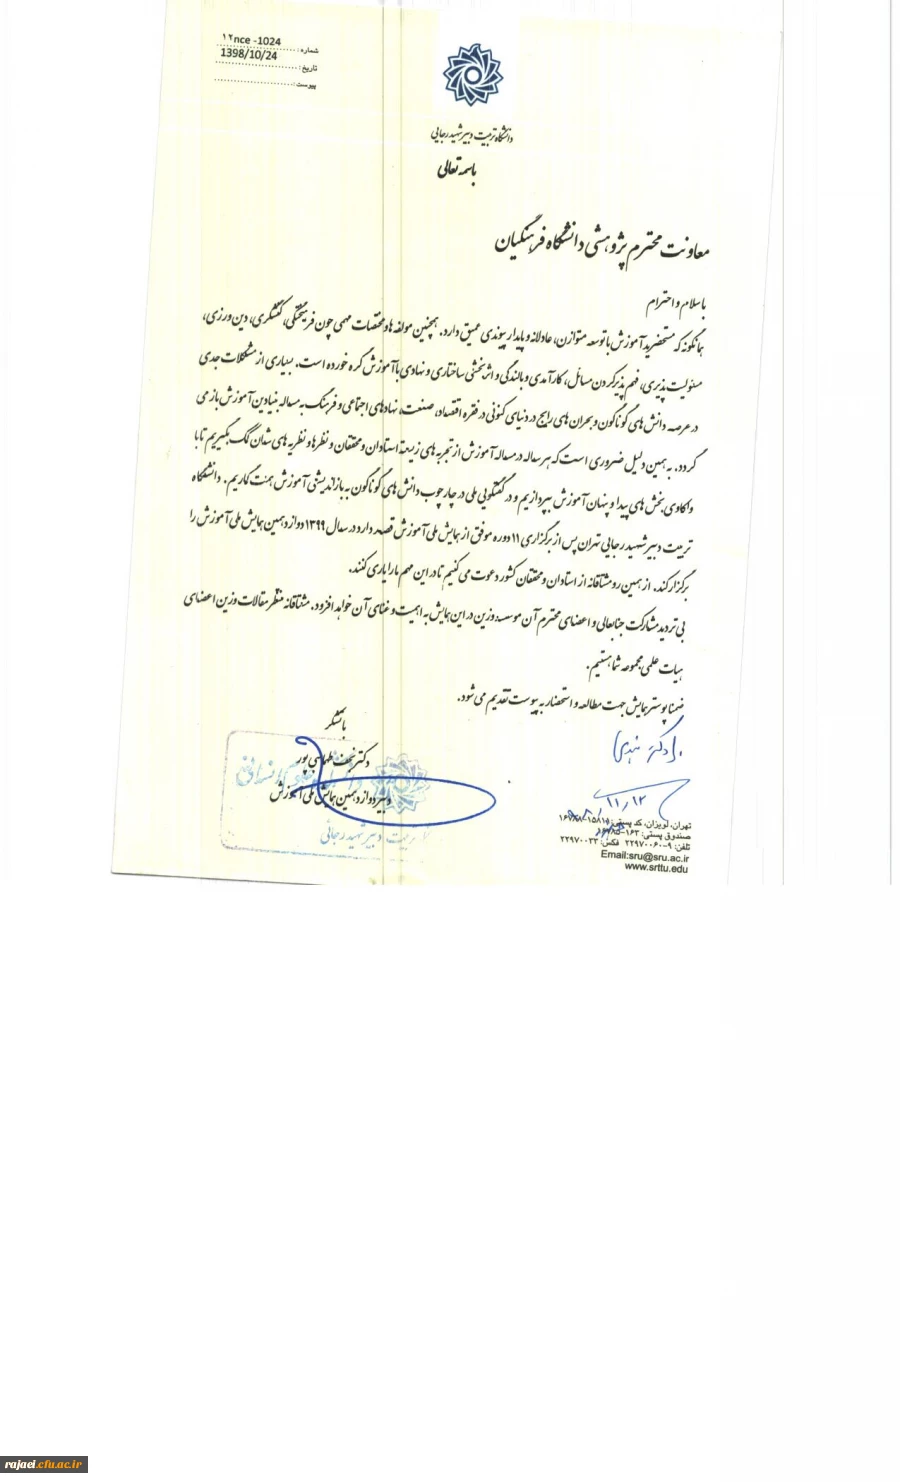 شماره: ۱۲nce -1024
تاریخ: 1398/10/24
پیوست:
دانشگاه تربیت دبیر شهید رجایی
باسمه تعالی
معاونت محترم پژوهشی دانشگاه فرهنگیان
با سلام و احترام
همانگونه که مستحضرید آموزش با توسعه متوازن، عادلانه و پایدار پیوندی عمیق دارد. همچنین مولفه ها و مختصات مهمی چون فرهیختگی، کنشگری، دین ورزی،
مسئولیت پذیری، فهم پذیر کردن مسائل، کارآمدی و بالندگی و اثربخشی ساختاری و نهادی با آموزش گره خورده است. بسیاری از مشکلات جدی
در عرصه دانش های گوناگون و بحران های رایج در دنیای کنونی در فقره اقتصاد، صنعت، نهادهای اجتماعی و فرهنگ به مساله بنیادین آموزش باز می
گردد. به همین دلیل ضروری است که هر ساله در مساله آموزش از تجربه های زیسته استادان و محققان و نظرها و نظریه های شان کمک بگیریم تا با
واکاوی بخش های پیدا و پنهان آموزش بپردازیم و در گفتگویی ملی در چارچوب دانش های گوناگون به بازاندیشی آموزش همت گماریم. دانشگاه
تربیت دبیر شهید رجایی تهران پس از برگزاری ۱۱ دوره موفق از همایش ملی آموزش قصد دارد در سال ۱۳۹۹ دوازدهمین همایش ملی آموزش را
برگزار کند. از همین رو مشتاقانه از استادان و محققان کشور دعوت می کنیم تا در این مهم ما را یاری کنند.
بی تردید مشارکت جنابعالی و اعضای محترم آن موسسه وزین در این همایش به اهمیت و غنای آن خواهد افزود. مشتاقانه منتظر مقالات وزین اعضای
هیات علمی مجموعه شما هستیم.
ضمنا پوستر همایش جهت مطالعه و استحضار به پیوست تقدیم می شود.
با تشکر
دکتر نجف طهماسبی پور
دبیر دوازدهمین همایش ملی آموزش
تربیت دبیر شهید رجائی
۱۱/۱۲
تهران، لویزان، کد پستی:
صندوق پستی: ۱۶۳-
تلفن: ۹-۲۲۹۷۰۰۶۰ فکس: ۲۲۹۷۰۰۳۳
Email:sru@sru.ac.ir
www.srttu.edu
rajaei.cfu.ac.ir